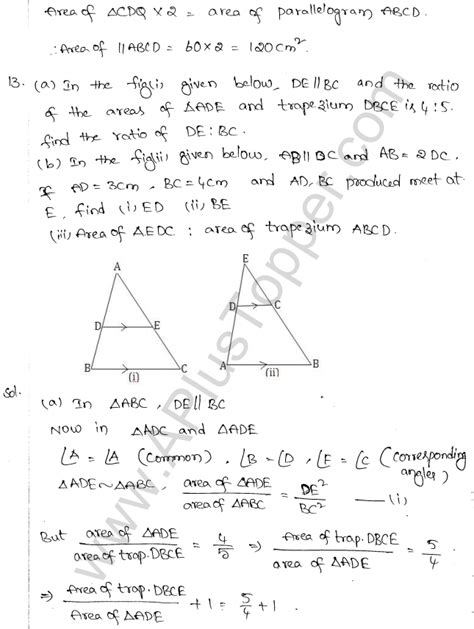 Area of △CDQ × 2 = area of parallelogram ABCD.
∴ Area of ||ABCD = 60×2 = 120cm².
13. (a) In the fig(i) given below, DE||BC and the ratio
of the areas of △ADE and trapezium DBCE is 4:5.
find the ratio of DE:BC.
(b) In the fig(ii) given below, AB||DC and AB = 2DC.
If AD = 3cm, BC = 4cm and AD, BC produced meet at
E, find (i) ED (ii) BE
(iii) Area of △EDC : area of trapezium ABCD.
A
D E
B C
(i)
E
D C
A B
(ii)
Sol.
(a) In △ABC, DE||BC
Now in △ADC and △ADE
∠A = ∠A (common), ∠B = ∠D, ∠E = ∠C (corresponding
angles)
△ADE ~ △ABC, area of △ADE / area of △ABC = DE² / BC² —(i)
But area of △ADE / area of trap. DBCE = 4/5 ⇒ Area of trap. DBCE / area of △ADE = 5/4
⇒ Area of trap. DBCE / Area of △ADE + 1 = 5/4 + 1.
www.APlusTopper.com